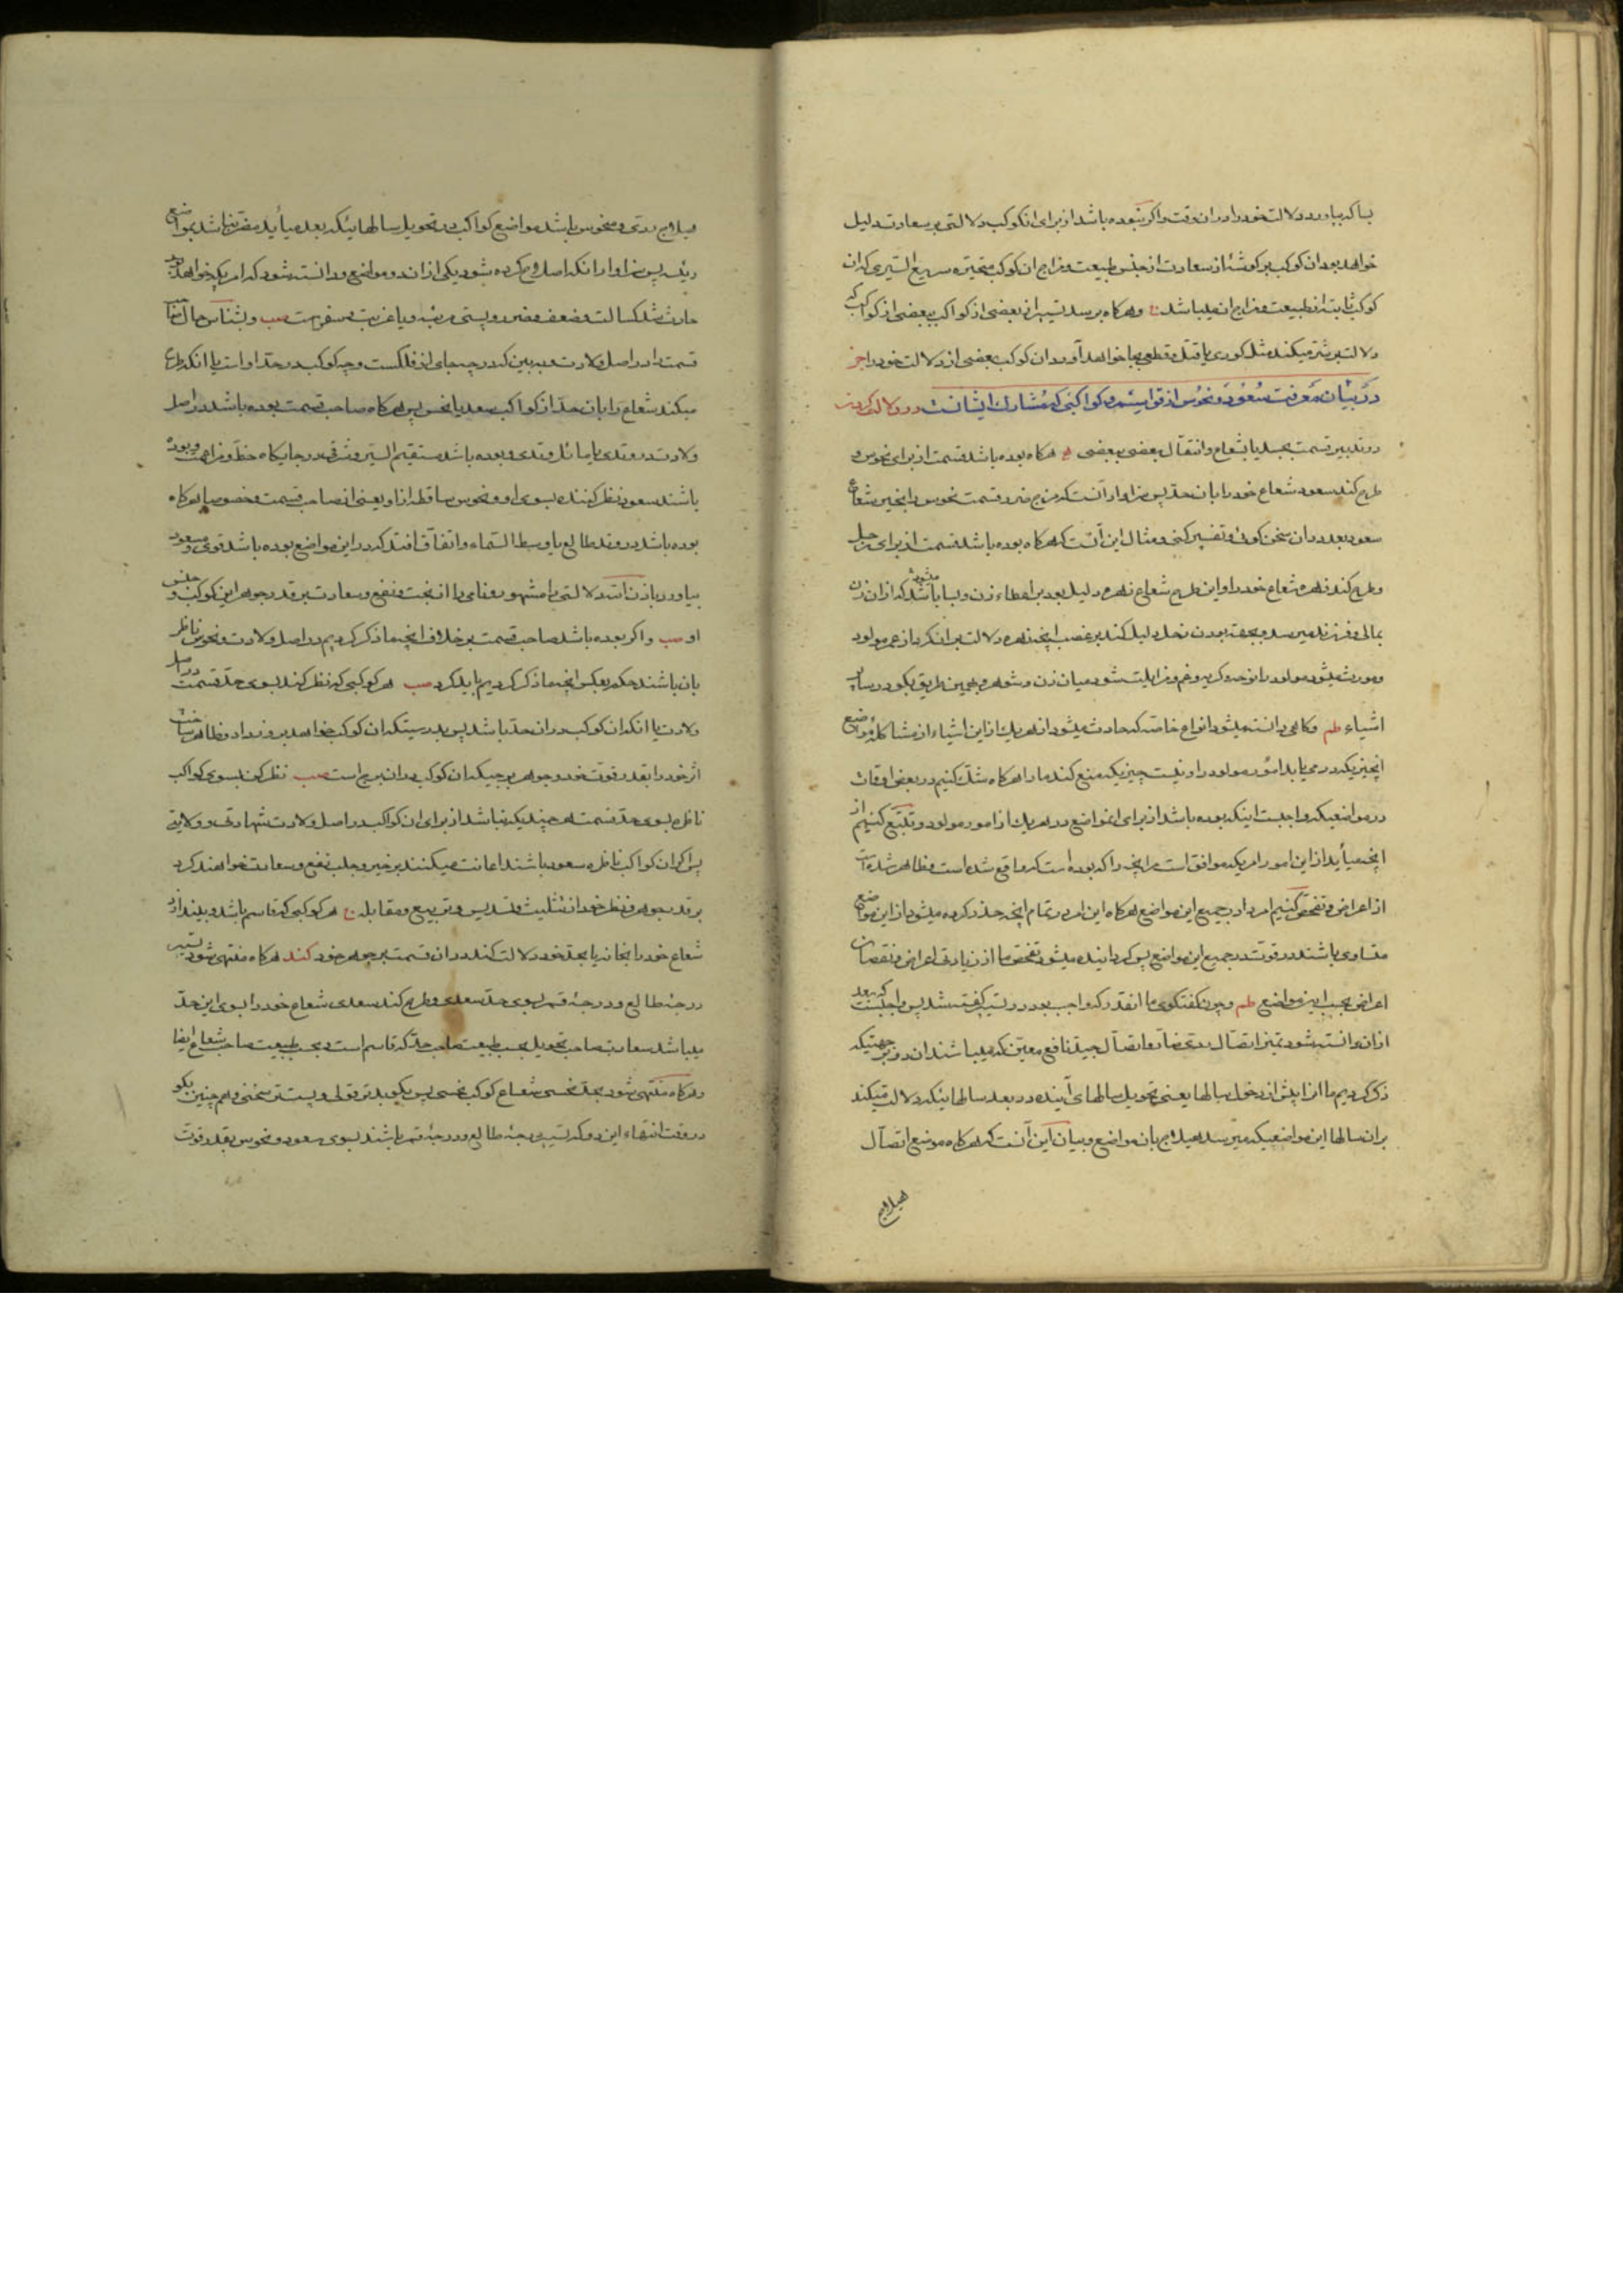 بسا که بیاورد دلالت خود را در ان وقت و اکر نبوده باشد از برای انکوکب دلالتی بر سعادت دلیل
خواهد بود ان کوکب بر کوشهٔ از سعادت از جنس طبیعت و مزاج ان کوکب متحیره سریع السیری که ان
کوکب ثابته از طبیعت و مزاج ان میباشد و هرکاه برسد تسییر از بعضی از کواکب ببعضی از کواکب که
دلالت بر شر میکند مثل کوری یا قتل و قطعی بجا خواهد آورد ان کوکب بعضی از دلالت خود را
در بیان معرفت سعود و نحوس از قواسم و کواکبی که مشارک ایشانست در دلالت کردن
در تدبیر قسمت بجسد یا بشعاع و انتقال بعضی ببعضی هرکاه بوده باشد قسمت از برای نحوس و
طرح کند سعود شعاع خود را بان حد پس سزاوار آنست که مزج خبر و قسمت نحوس را بخیر شعاع
سعود بعد در ان سخن کوئی و تفسیر کنی و مثال این آنست که هرکاه بوده باشد قسمت از برای زحل
و طرح کند زهره شعاع خود را و این طرح شعاع زهره دلیل بود بر اعطاء زن و بسا باشد که از ان زن
بمالی و فرزند میرسد و بجهة بودن زحل دلیل کند بر غصب انچه زهره دلالت بر ان کرد از عمر مولود
و مورث میشود مولود را نوحه و کریه و غم و مزایلت شود میان زن و شوهر و بهمین طریق بکو در سایر
اشیاء و کاهی دانسته میشود انواع خاصه که حادث میشود از هر یک از این اشیاء از مشاکله مواضع
انچیزیکه در می یابد امور مولود را و نیست چیزیکه منع کند ما را هرکاه شک کنیم در بعض اوقات
در مواضعیکه واجبست اینکه بوده باشد از برای انمواضع در هر یک از امور مولود و تتبع کنیم از
انچه میأید از این امور امریکه موافق است مر انچه را که بوده است که واقع شده است و ظاهر شده است
از اعراض و تفحص کنیم امر را در جمیع این مواضع هرکاه این امر در تمام انچه حذر کرده میشود از این مواضع
متساوی باشند در قوت در جمیع این مواضع پس کردانیده میشود تفحص ما از زیادتی اعراض و نقصان
اعراض بحسب این مواضع و چون کفتکوی ما انقدر که واجب بود در تسییر کفته شد پس واجبست که بعد
از ان دانسته شود تمیز اتصال ردی ضار و اتصال جید نافع معین که میباشند ان دو بر جهتیکه
ذکر کردیم ما انرا پیش از دخول سالها یعنی تحویل سالهای آینده در بعد سالها نیکه دلالت میکند
بران سالها این مواضعیکه میرسد هیلاج بان مواضع و بیان این آنست که هرکاه موضع اتصال
هیلاج
هیلاج ردی و منحوس باشد مواضع کواکب در تحویل سالهائیکه بعد میأید مقترن باشد بمواضع
ردیه پس سزاوار انکه اصل طرح کرده شود یکی از اندو مواضع و دانسته شود که امریکه خواهد بود
حادث شد کسالت و ضعف و ضرر و پستی مرتبه و یا غربت و سفر است و بشناس حال صاحب
قسمت را در اصل ولادت و به بین که در چه جای از فلکست و چه کوکب در حد او است یا انکه طرح
میکند شعاع را بان حد از کواکب سعد یا نحس پس هرکاه صاحب قسمت بوده باشد در اصل
ولادت در وتدی یا مائل وتدی و بوده باشد مستقیم السیر و شرقی و در جایکاه حظ و مزاعمت و بوده
باشند سعود نظر کننده بسوی او و نحوس ساقط از او یعنی از صاحب قسمت و خصوصا هرکاه
بوده باشد در وتد طالع یا وسط السماء و اتفاق افتد که در این مواضع بوده باشد قوی و مسعود
بیاورد باذن الله دلالتی را مشهور و نامی را از بخت و نفع و سعادت بر قدر جوهر این کوکب و جنس
او و اکر بوده باشد صاحب قسمت بر خلاف انچه ما ذکر کردیم در اصل ولادت و نحوس ناظر
بان باشند حکم بعکس انچه ما ذکر کردیم باید کرد هر کوکبی که نظر کند بسوی حد قسمت در اصل
ولادت یا انکه ان کوکب در ان حد باشد پس بدرستیکه ان کوکب خواهد بروز داد و ظاهر ساخت
اثر خود را بقدر قوت خود و جوهر برجیکه ان کوکب در ان برج است نظر کن بسوی کواکب
ناظره بسوی حد قسمت هر چندیکه نباشد از برای ان کواکب در اصل ولادت شهادتی و ولایتی
پس اکر ان کواکب ناظره سعود باشند اعانت میکنند بر خیر و جلب نفع و سعادت خواهند کرد
بر قدر جوهر و نظر خود از تثلیث و تسدیس و تربیع و مقابله هر کوکبی که قاسم باشد و بیندازد
شعاع خود را بخانه یا بحد خود دلالت کند در ان قسمت بر جوهر خود هرکاه منتهی شود تسییر
درجهٔ طالع و درجهٔ قمر بسوی حد سعدی و طرح کند سعدی شعاع خود را بسوی این حد
میباشد سعادت صاحب تحویل بحسب طبیعت صاحب حد که قاسم است و بحسب طبیعت صاحب شعاع ایضا
و هرکاه منتهی شود بحد نحسی شعاع کوکب نحسی پس بکو بدترین قولی و پست ترین سخنی و هم چنین بکو
در وقت انتهاء این دو که تسییر درجهٔ طالع و درجهٔ قمر باشند بسوی سعود و نحوس بقدر قوت